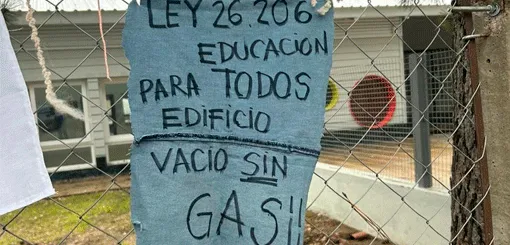 LEY 26.206
EDUCACION
PARA TODOS
EDIFICIO
VACIO SIN
GAS¡¡